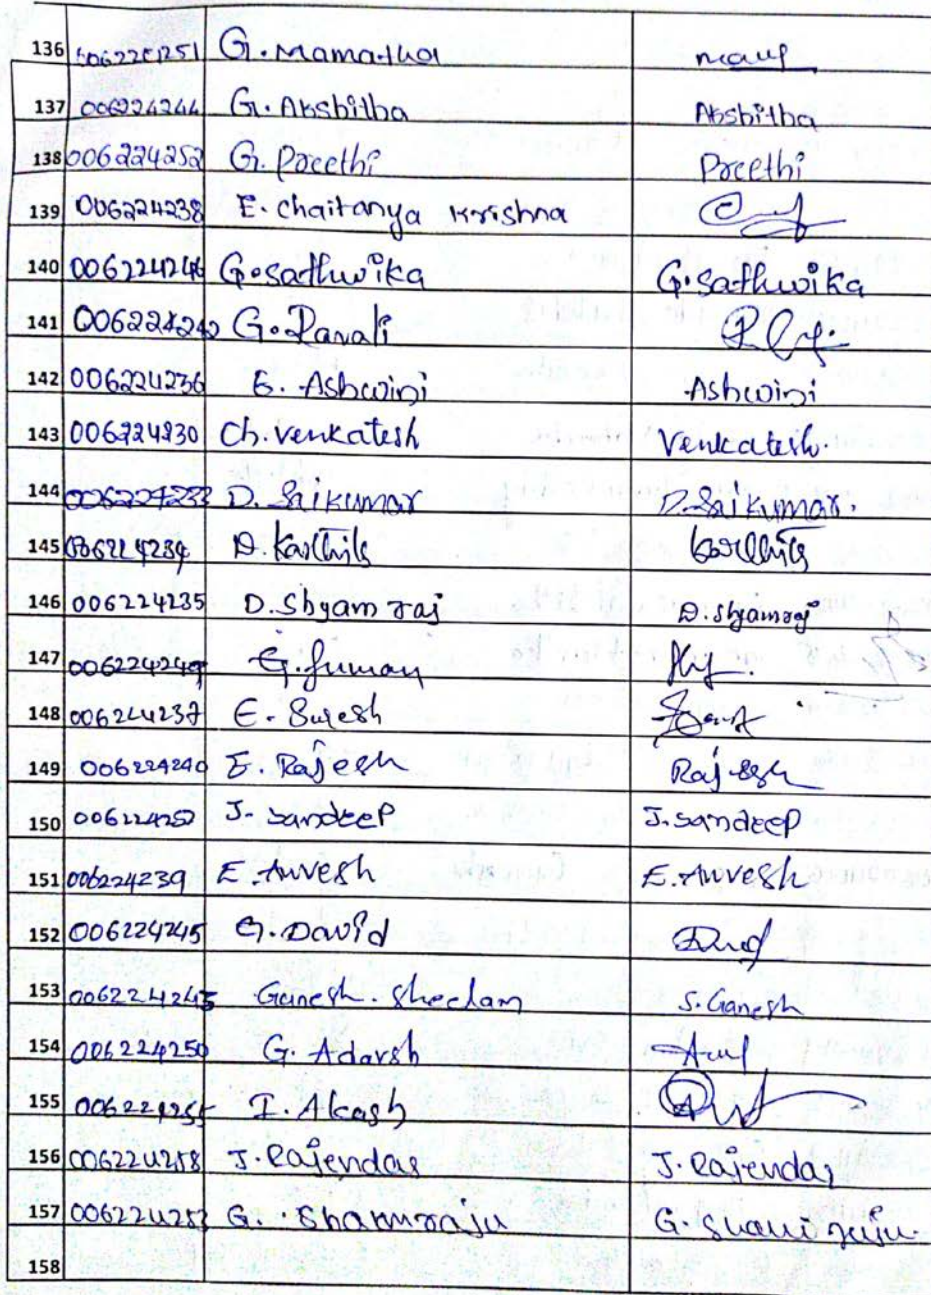 136 G. Mamatha
137 006224244 G. Akshitha Akshitha
138 006224252 G. Preethi Preethi
139 006224238 E. Chaitanya Krishna
140 G. Sathwika G. Sathwika
141 G. Ravali
142 006224236 E. Ashwini Ashwini
143 006224230 Ch. Venkatesh Venkatesh
144 006224233 D. Saikumar D. Saikumar.
145 006224234 D. Karthik Karthik
146 006224235 D. Shyam raj D. Shyamraj
147 G. Suman
148 006224237 E. Suresh
149 006224240 E. Rajesh Rajesh
150 J. Sandeep J. Sandeep
151 006224239 E. Anvesh E. Anvesh
152 006224245 G. David
153 Ganesh. Sheelam S. Ganesh
154 006224250 G. Adarsh
155 I. Akash
156 006224258 J. Rajendar J. Rajendar
157 006224253 G. Shamraju G. Shamraju
158